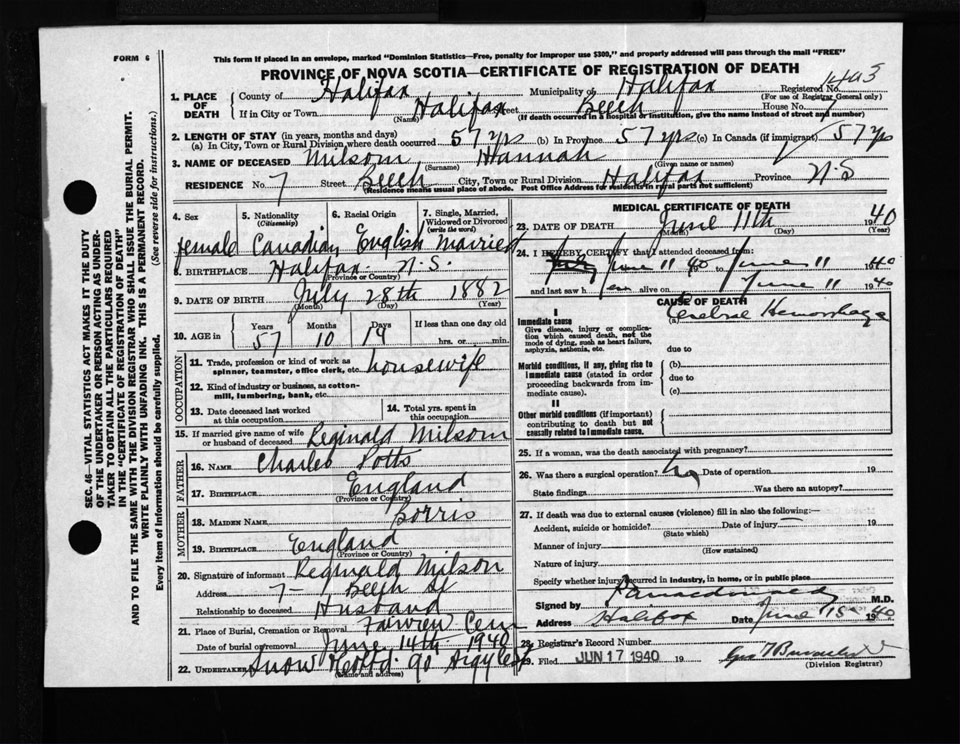 FORM 6
This form if placed in an envelope, marked "Dominion Statistics—Free, penalty for improper use $300," and properly addressed will pass through the mail "FREE"
PROVINCE OF NOVA SCOTIA—CERTIFICATE OF REGISTRATION OF DEATH
1. PLACE OF DEATH
County of Halifax Municipality of Halifax Registered No. 1493
(For use of Registrar General only)
If in City or Town Halifax Street Beech House No. 7
(Name) (If death occurred in a hospital or institution, give the name instead of street and number)
2. LENGTH OF STAY (in years, months and days)
(a) In City, Town or Rural Division where death occurred 57 yrs (b) In Province 57 yrs (c) In Canada (if immigrant) 57 yrs
3. NAME OF DECEASED Milsom, Hannah
(Surname) (Given name or names)
RESIDENCE No. 7 Street Beech City, Town or Rural Division Halifax Province N.S
(Residence means usual place of abode. Post Office Address for residents in rural parts not sufficient)
4. Sex 5. Nationality (Citizenship) 6. Racial Origin 7. Single, Married, Widowed or Divorced (write the word)
female Canadian English Married
8. BIRTHPLACE Halifax N.S.
(Province or Country)
9. DATE OF BIRTH July 28th 1882
(Month) (Day) (Year)
10. AGE in Years Months Days If less than one day old
57 10 14 hrs. or min.
OCCUPATION
11. Trade, profession or kind of work as spinner, teamster, office clerk, etc. housewife
12. Kind of industry or business, as cotton-mill, lumbering, bank, etc.
13. Date deceased last worked at this occupation
14. Total yrs. spent in this occupation
15. If married give name of wife or husband of deceased Reginald Milsom
FATHER
16. NAME Charles Potts
17. BIRTHPLACE England
(Province or Country)
MOTHER
18. MAIDEN NAME Borris
19. BIRTHPLACE England
(Province or Country)
20. Signature of informant Reginald Milson
Address 7- Beech St
Relationship to deceased Husband
21. Place of Burial, Cremation or Removal Fairview Cem
Date of burial or removal June 14th 1940
22. UNDERTAKER Snow & Co Ltd. 90 Argyle St
(Name and address)
MEDICAL CERTIFICATE OF DEATH
23. DATE OF DEATH June 11th 1940
(Month) (Day) (Year)
24. I HEREBY CERTIFY that I attended deceased from:
June 11 40 to June 11 1940
and last saw her alive on June 11 1940
CAUSE OF DEATH
I
Immediate cause
Give disease, injury or complication which caused death, not the mode of dying, such as heart failure, asphyxia, asthenia, etc.
(a) Cerebral Hemorrhage
due to
Morbid conditions, if any, giving rise to immediate cause (stated in order proceeding backwards from immediate cause).
(b)
due to
(c)
II
Other morbid conditions (if important) contributing to death but not causally related to immediate cause.
25. If a woman, was the death associated with pregnancy?
26. Was there a surgical operation? no Date of operation 19
State findings Was there an autopsy?
27. If death was due to external causes (violence) fill in also the following:—
Accident, suicide or homicide? Date of injury 19
(State which)
Manner of injury
(How sustained)
Nature of injury
Specify whether injury occurred in industry, in home, or in public place
Signed by M.D.
Address Halifax Date June 15 1940
28. Registrar's Record Number
29. Filed JUN 17 1940 19
(Division Registrar)
SEC. 46—VITAL STATISTICS ACT MAKES IT THE DUTY
OF THE UNDERTAKER OR PERSON ACTING AS UNDERTAKER TO OBTAIN ALL THE PARTICULARS REQUIRED
IN THE "CERTIFICATE OF REGISTRATION OF DEATH"
AND TO FILE THE SAME WITH THE DIVISION REGISTRAR WHO SHALL ISSUE THE BURIAL PERMIT.
WRITE PLAINLY WITH UNFADING INK. THIS IS A PERMANENT RECORD.
Every item of information should be carefully supplied. (See reverse side for instructions.)